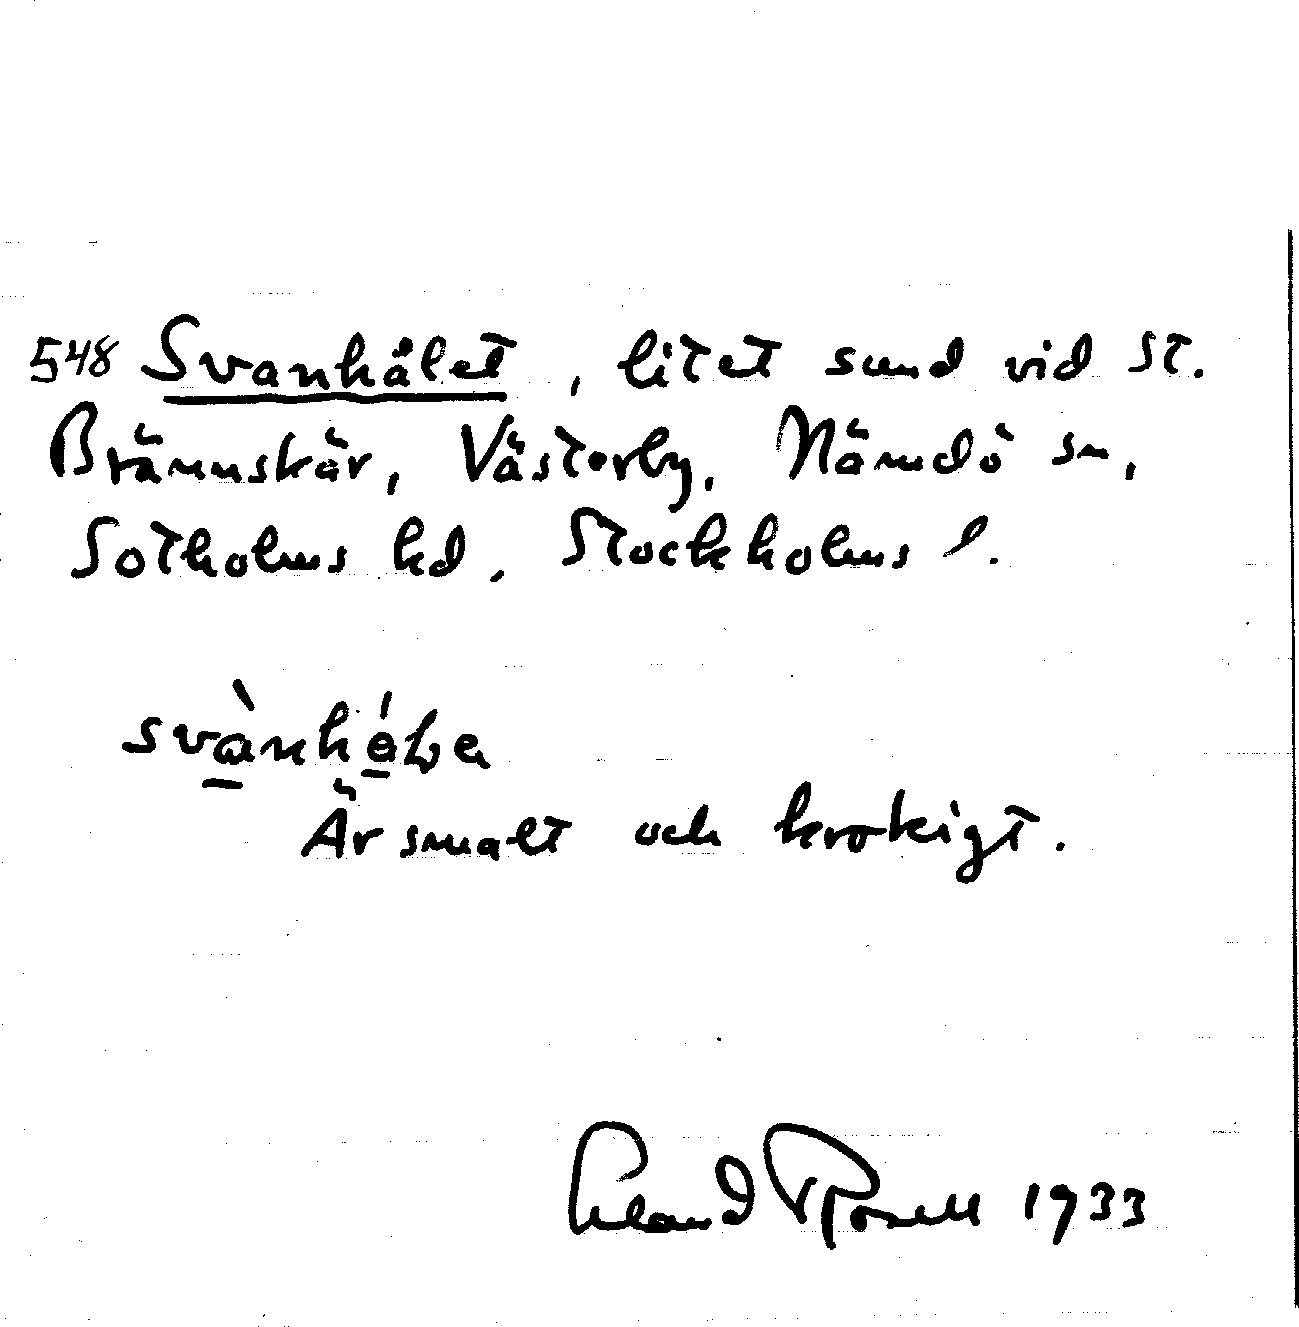 548 Svanhålet, litet sund vid St.
Brännskär, Västerby, Nämdö sn,
Sotholms hd. Stockholms l.
Är smalt och krokigt.
Erland Rosell 1933